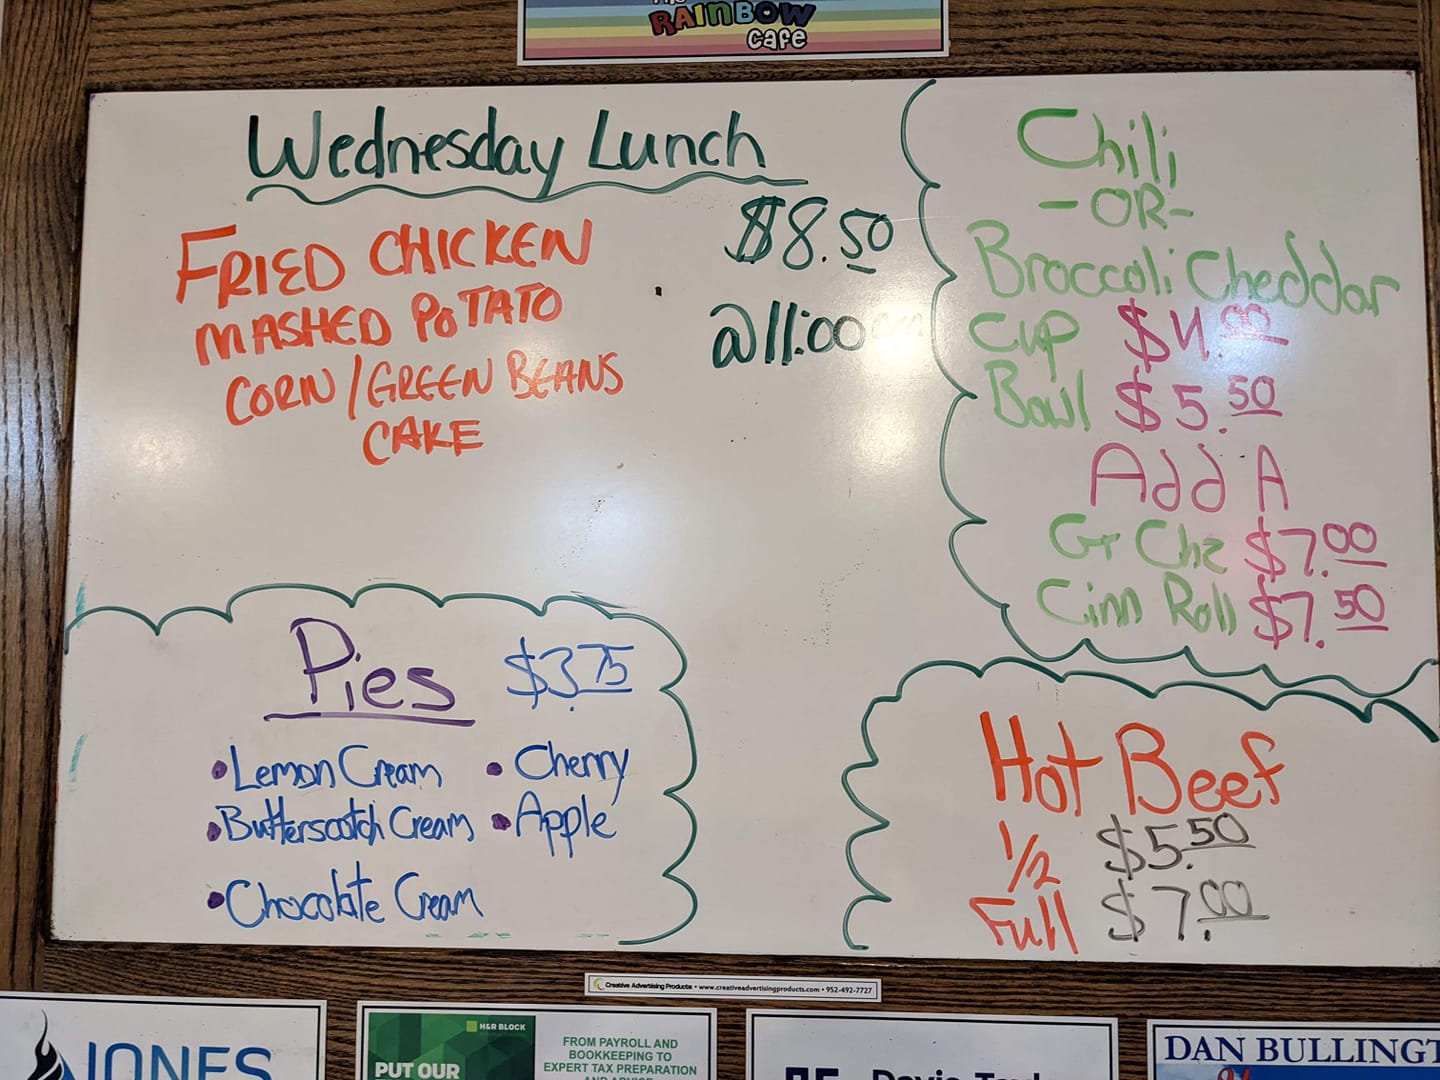 The
RAINBOW
cafe
Wednesday Lunch
$8.50
@11:00am
FRIED CHICKEN
MASHED POTATO
CORN/GREEN BEANS
CAKE
Chili
-OR-
Broccoli Cheddar
Cup $4.00
Bowl $5.50
Add A
Gr Chz $7.00
Cinn Roll $7.50
Pies $3.75
• Lemon Cream
• Butterscotch Cream
• Chocolate Cream
• Cherry
• Apple
Hot Beef
1/2 $5.50
Full $7.00
Creative Advertising Products • www.creativeadvertisingproducts.com • 952-492-7727
JONES
H&R BLOCK
PUT OUR
FROM PAYROLL AND
BOOKKEEPING TO
EXPERT TAX PREPARATION
DAN BULLINGT